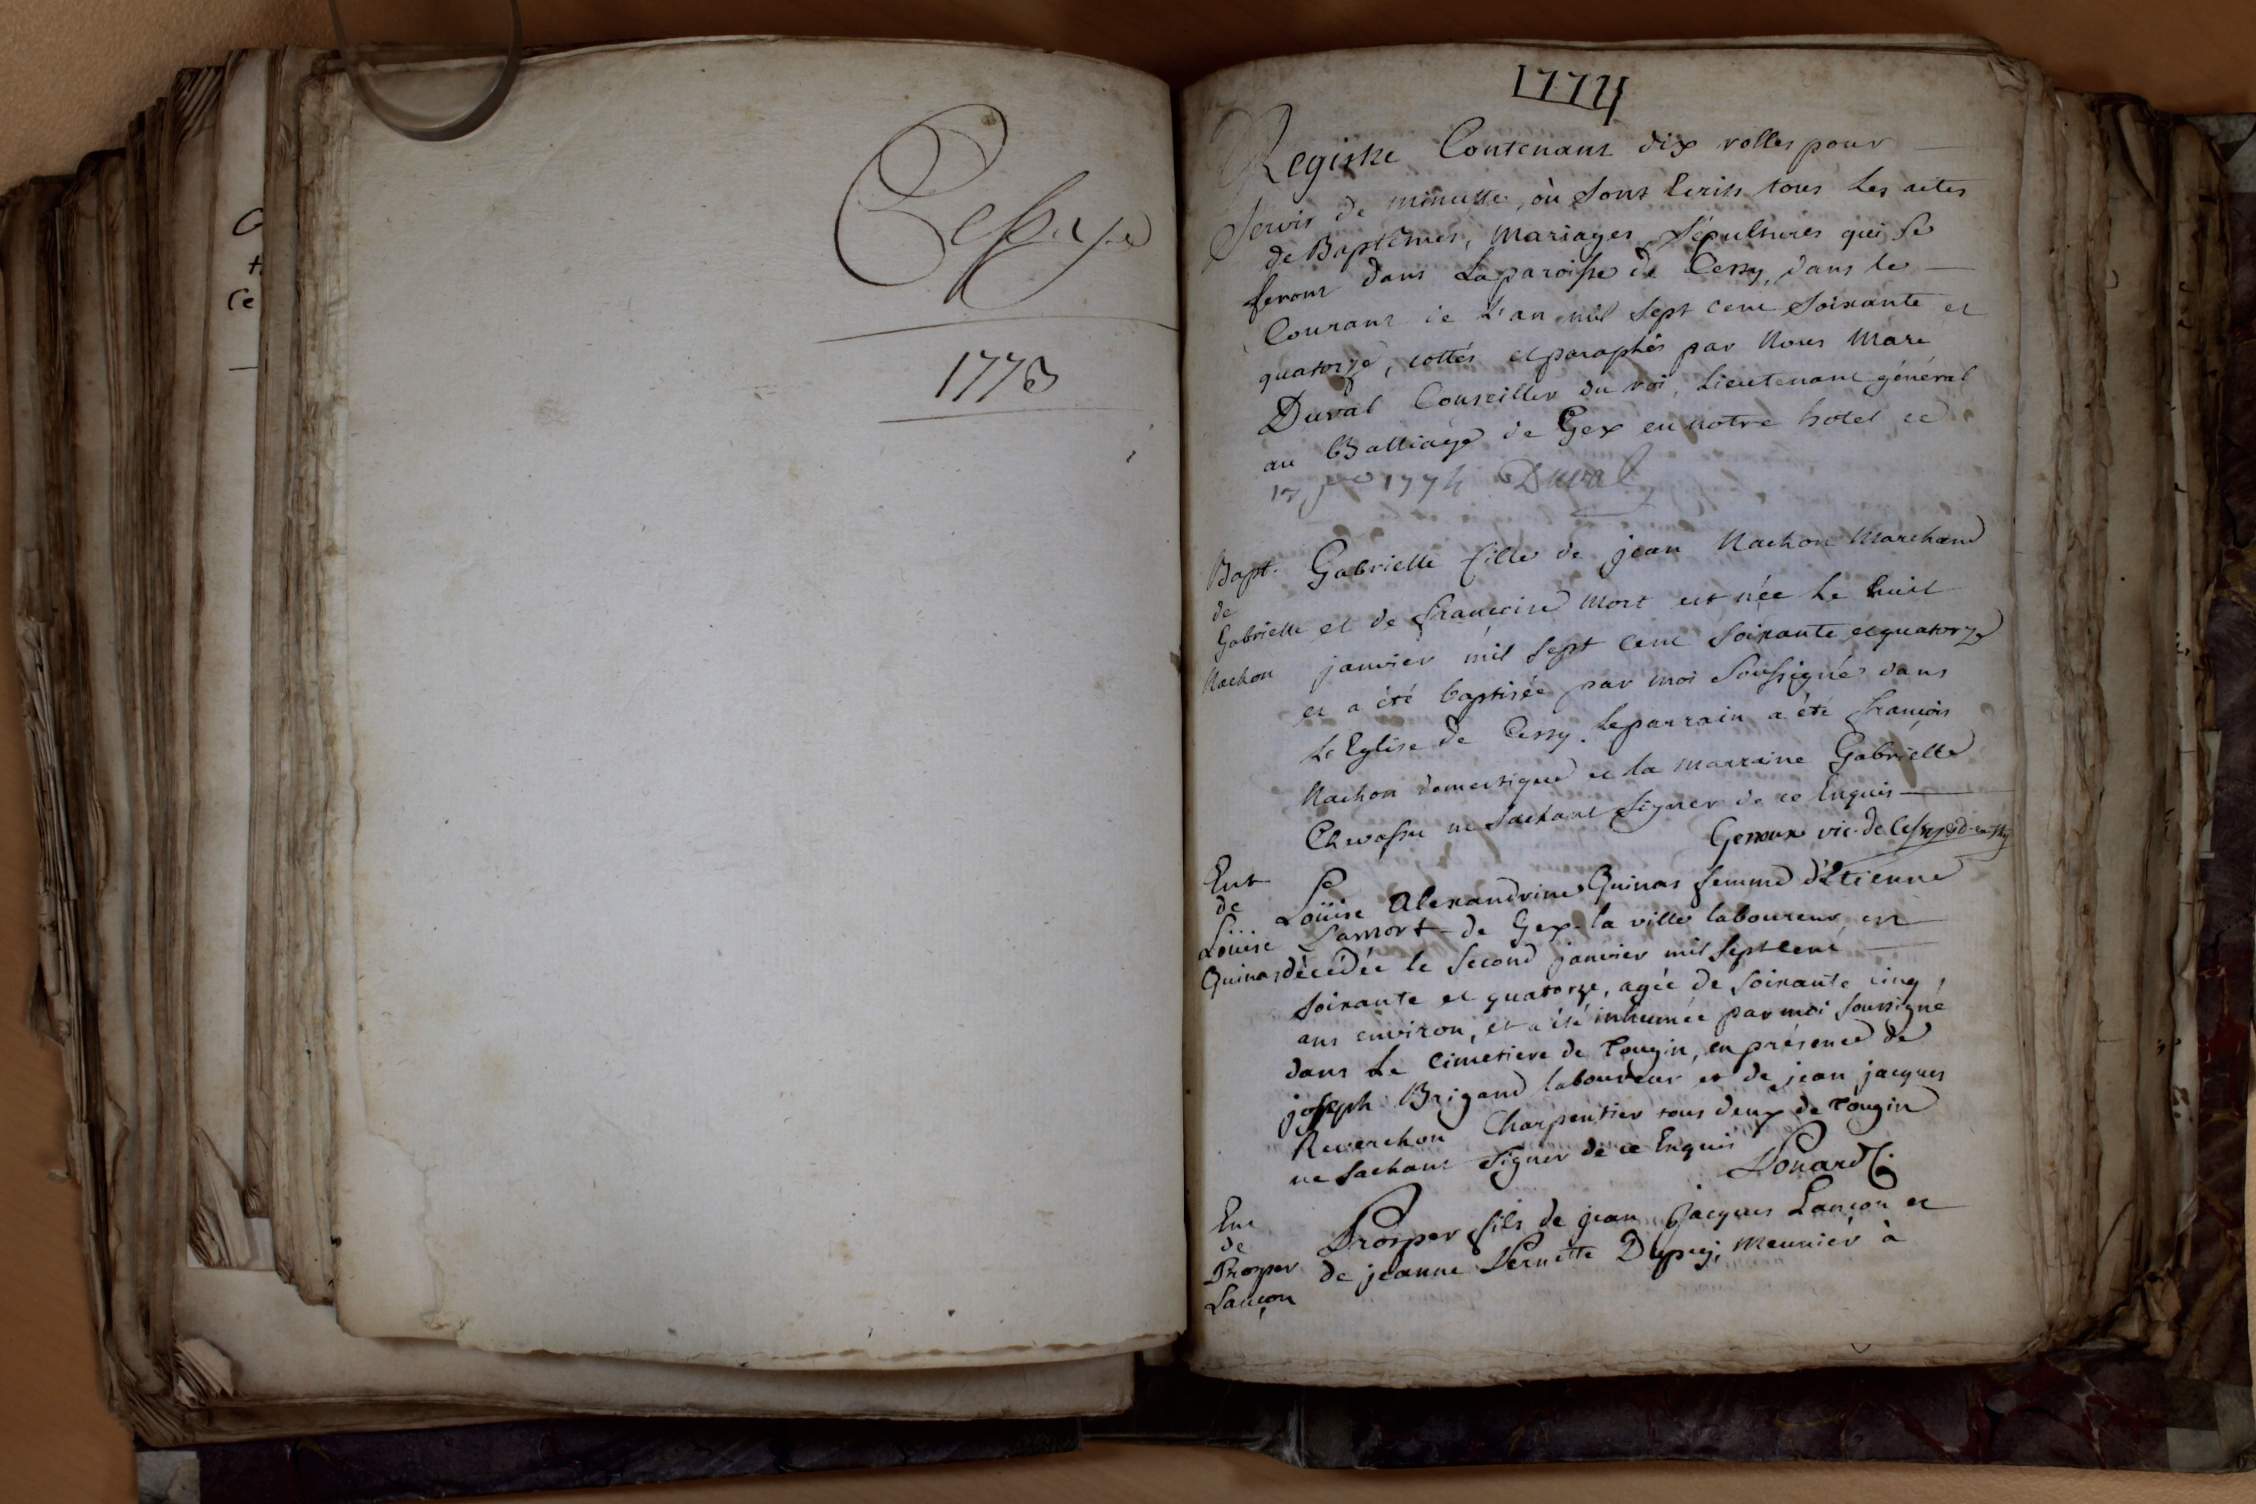 Cessy
1773
1774
Registre Contenant dix rolles pour
servir de minutte, où sont Ecrits tous les actes
de Baptêmes, Mariages, Sépultures qui se
feront dans La paroisse de Cessy, dans le
Courant de L'an mil sept cent soixante et
quatorze, cottés et paraphés par Nous Marc
Duval Conseiller du roi, Lieutenant général
au Balliage de Gex en notre hotel ce
1774 Duval
Bapt.
de
Gabrielle
Nachon
Gabrielle fille de jean Nachon Marchand
et de francoise Mort est née le huit
janvier mil sept cent soixante et quatorze
et a été baptisée par moi soussigné dans
Le Eglise de Cessy. Le parrain a été françois
Nachon domestique et la marraine Gabrielle
Chevassu ne sachant signer de ce Enquis
Genoux vic. de Cessy
Ent
de
Loüise
Quinas
Loüise Alexandrine Quinas femme d'Etienne
Lamort de Gex la ville laboureur est
décédée le second janvier mil sept cent
soixante et quatorze, agée de soixante cinq
ans environ, et a été inhumée par moi soussigné
dans Le Cimetiere de Tougin, en présence de
joseph Brigand laboureur et de jean jacques
Reverchon Charpentier tous deux de Tougin
ne sachant signer de ce Enquis
Ent
de
Prosper
Lançon
Prosper fils de jean Jacques Lançon et
de jeanne Pernette Dupuy, meunier à